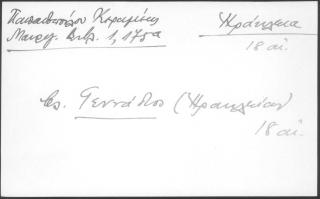 Παπαδοπούλου Κεραμέως
Μαυρ. Βιβ. 1, 175α
Ἡράκλεια
18 αἰ.
Γεννάδιος (Ἡρακλείας)
18 αἰ.